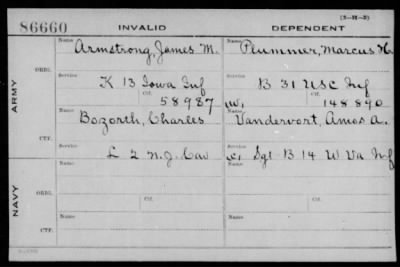 86660 INVALID DEPENDENT (3-H-3)
Name Armstrong, James M. Name Plummer, Marcus H.
ARMY ORIG. Service K 13 Iowa Inf Service B 31 USC Inf
Ctf. 58987 W, Ctf. 148890
Name Bozorth, Charles Name Vandervort, Amos A.
CTF. Service L 2 N.J. Cav Service C, Sgt B 14 W Va Inf
NAVY ORIG. Name Ctf. Name Ctf.
Service Service
CTF. Name Name